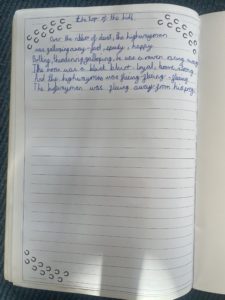 The top of the hill
Over the of dust, the highwayman
was galloping away - fast, speedy, happy
Bolting, thundering, galloping, he was a raven
The horse was a black - loyal, brave, strong
And the highwayman was fleeing - fleeing - fleeing
The highwayman was fleeing away from his